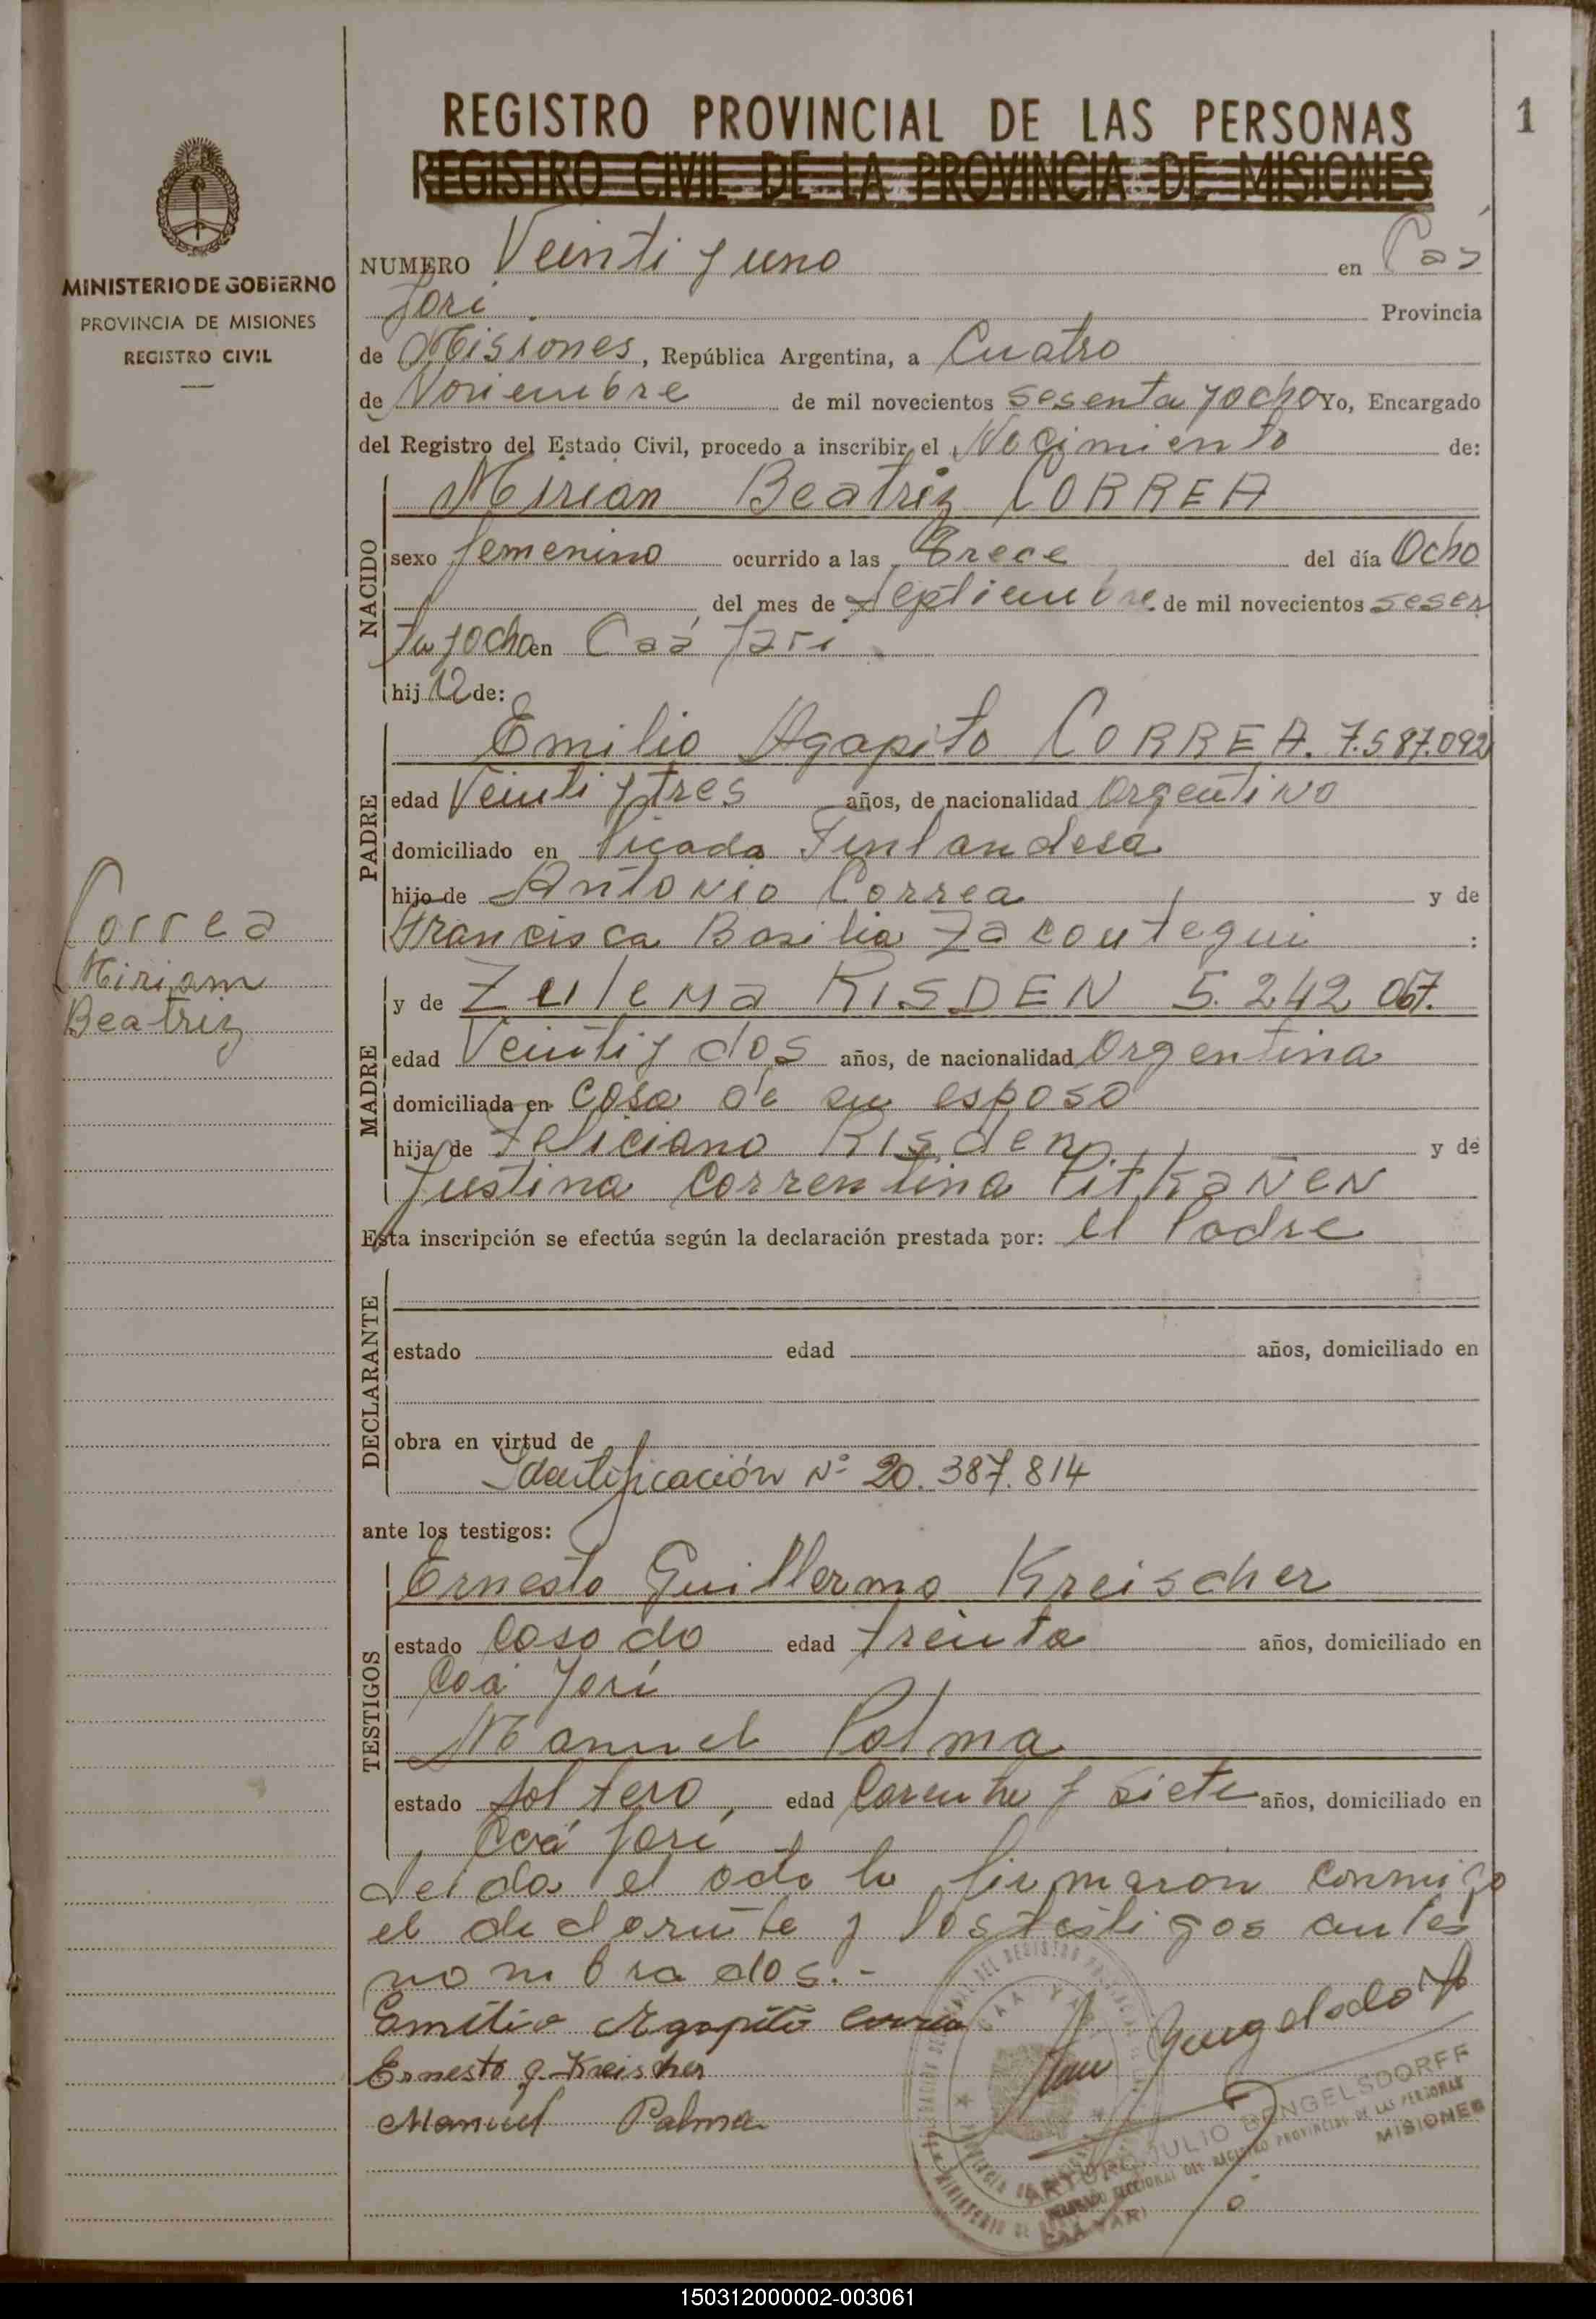 REGISTRO PROVINCIAL DE LAS PERSONAS
1
REGISTRO CIVIL DE LA PROVINCIA DE MISIONES
MINISTERIO DE GOBIERNO
PROVINCIA DE MISIONES
REGISTRO CIVIL
NUMERO Veinti y uno en Caá
Yarí Provincia
de Misiones, República Argentina, a Cuatro
de Noviembre de mil novecientos sesenta y ocho Yo, Encargado
del Registro del Estado Civil, procedo a inscribir el Nacimiento de:
NACIDO
Mirian Beatriz CORREA
sexo femenino ocurrido a las Trece del día Ocho
del mes de Septiembre de mil novecientos sesen
ta y ocho en Caá Yari
hij de:
PADRE
Emilio Agapito CORREA. 7.587.092
edad Veinti y tres años, de nacionalidad Argentino
domiciliado en Picada Finlandesa
hijo de Antonio Correa y de
Francisca Basilia :
MADRE
y de Zulema RISDEN 5.242.067.
edad Veinti y dos años, de nacionalidad Argentina
domiciliada en casa de su esposo
hija de Feliciano Risden y de
Justina Correntina Pitkanen
Esta inscripción se efectúa según la declaración prestada por: el Padre
DECLARANTE
estado edad años, domiciliado en
obra en virtud de
Identificación Nº 20.387.814
ante los testigos:
TESTIGOS
Ernesto Guillermo Kreischer
estado Casado edad treinta años, domiciliado en
Caá Yarí
Manuel Palma
estado Soltero, edad Carenta y siete años, domiciliado en
Caá Yarí
Leida el acta la firmaron conmigo
el declarante y los testigos antes
nombrados.-
Emilio Agapito Correa
Ernesto G. Kreischer
Manuel Palma
ARTURO JULIO BENGELSDORFF
ENCARGADO SECCIONAL DEL REGISTRO PROVINCIAL DE LAS PERSONAS
CAA YARI MISIONES
Correa
Miriam
Beatriz
150312000002-003061